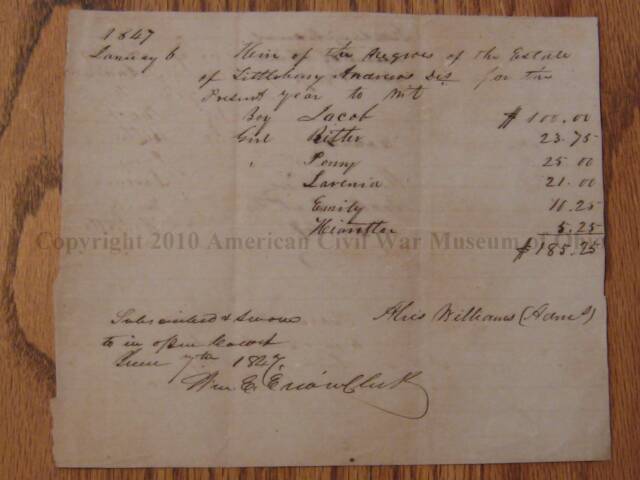 1847
January 6 Heir of the Negroes of the Estate
of Littlebury Andrews Des for the
Present year to Wit
Boy Jacob $100.00
Girl Bitter 23.75
" Penny 25.00
Lavenia 21.00
Emily 10.25
5.25
$185.25
Copyright 2010 American Civil War Museum of
Williams (Adm)
Subscribed & Sworn
to in open Court
June 7th 1847
Wm E. Clerk